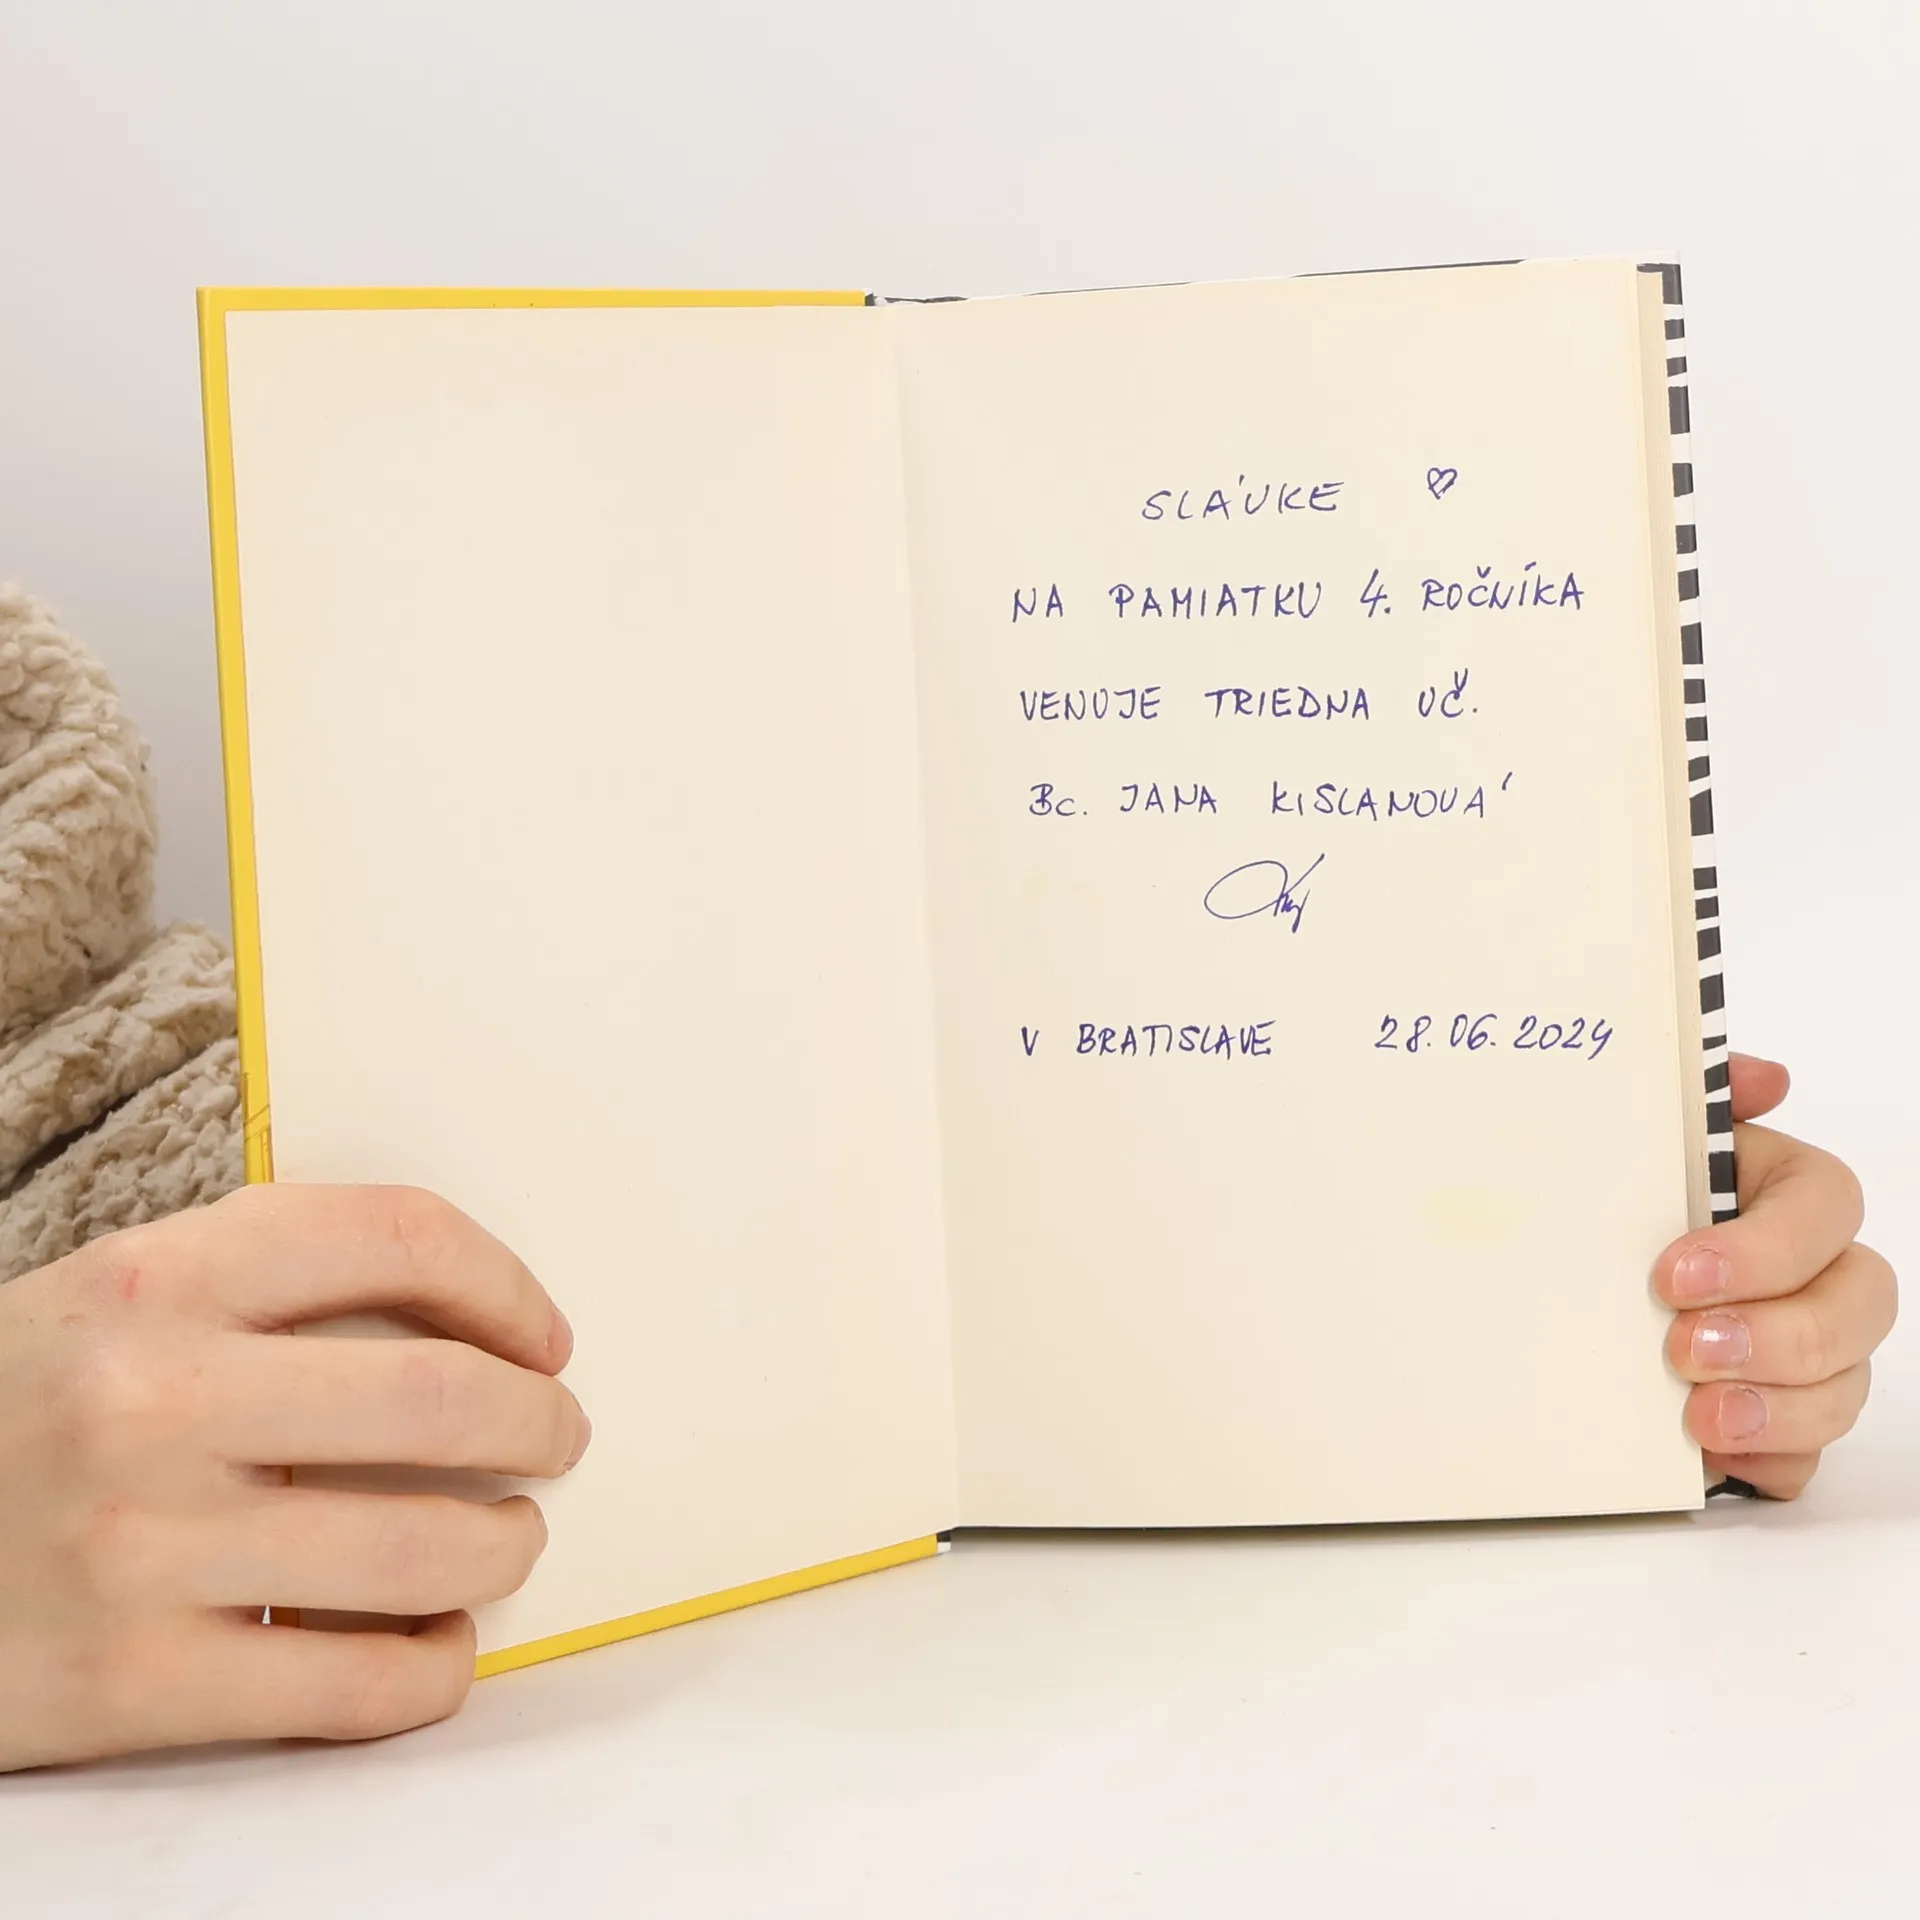 SLÁVKE ♡
NA PAMIATKU 4. ROČNÍKA
VENUJE TRIEDNA UČ.
Bc. JANA KISLANOVÁ
V BRATISLAVE 28.06.2024